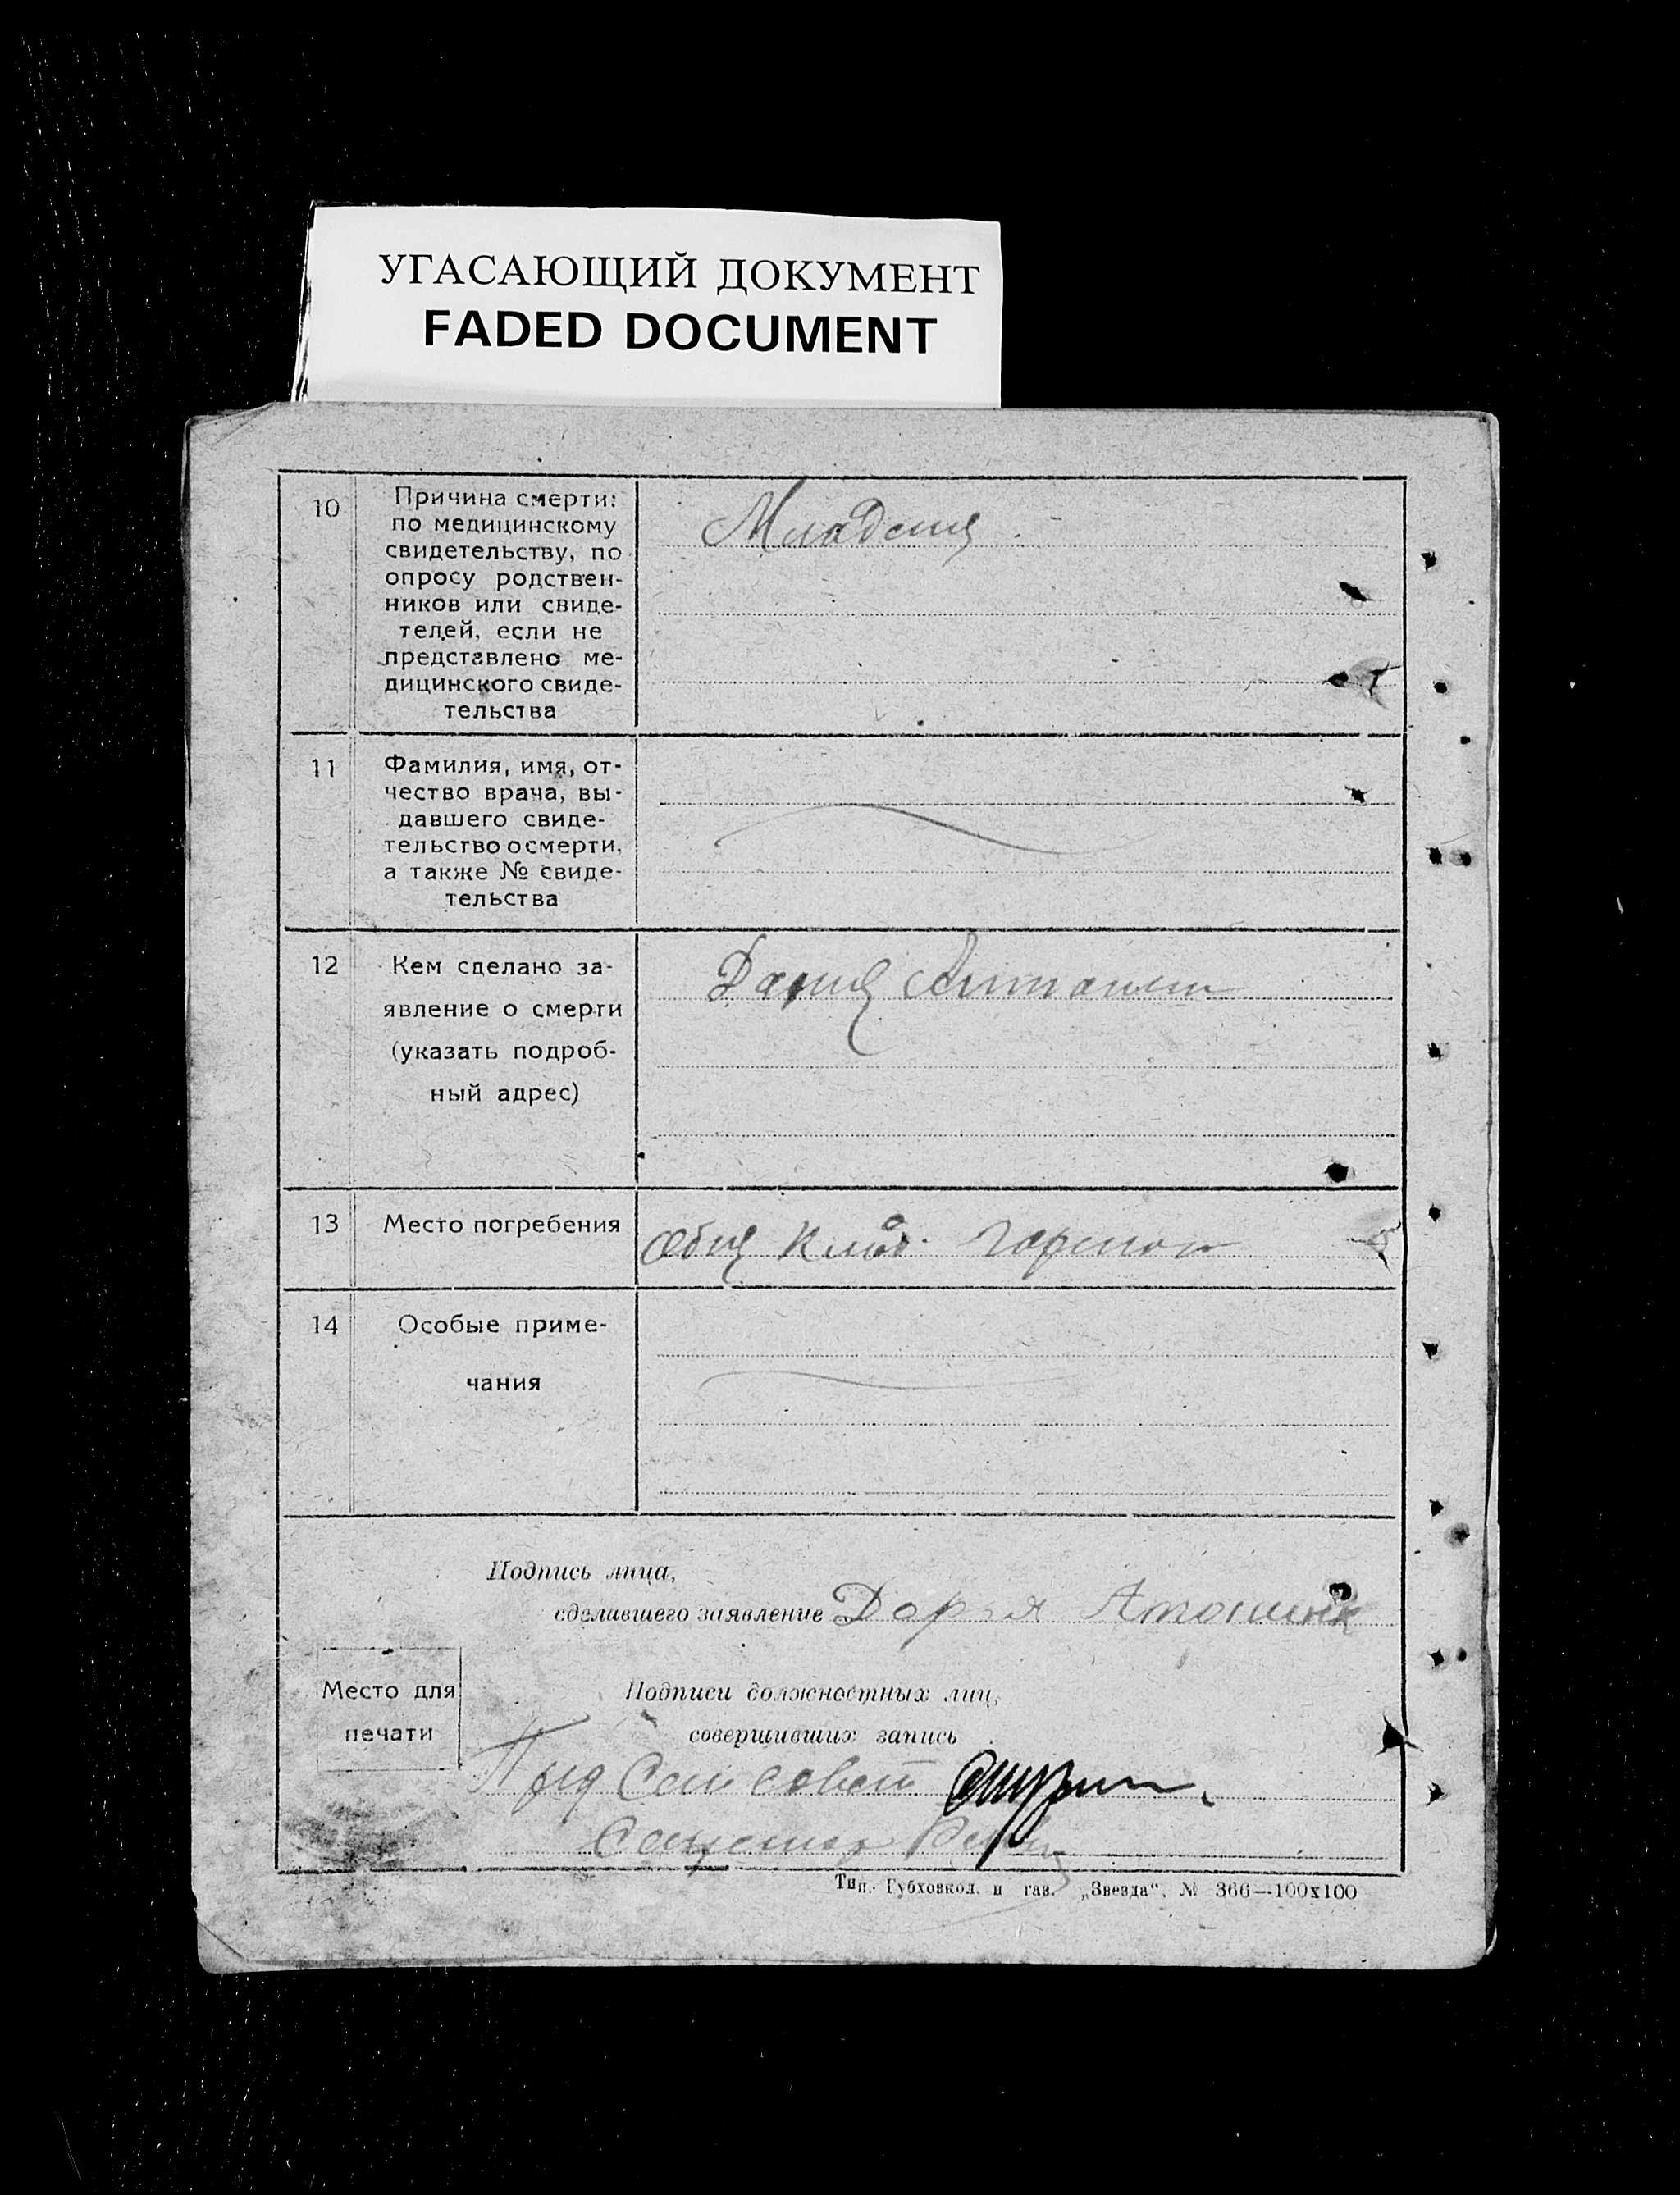 УГАСАЮЩИЙ ДОКУМЕНТ
FADED DOCUMENT
10
Причина смерти:
по медицинскому
свидетельству, по
опросу родствен-
ников или свиде-
телей, если не
представлено ме-
дицинского свиде-
тельства
11
Фамилия, имя, от-
чество врача, вы-
давшего свиде-
тельство о смерти,
а также № свиде-
тельства
12
Кем сделано за-
явление о смерти
(указать подроб-
ный адрес)
13
Место погребения
Общ Клад.
14
Особые приме-
чания
Подпись лица,
сделавшего заявление Дарья
Место для
печати
Подписи должностных лиц,
совершивших запись
Пред Сельсовет
Тип. Губховкол. и газ. „Звезда“, № 366—100х100